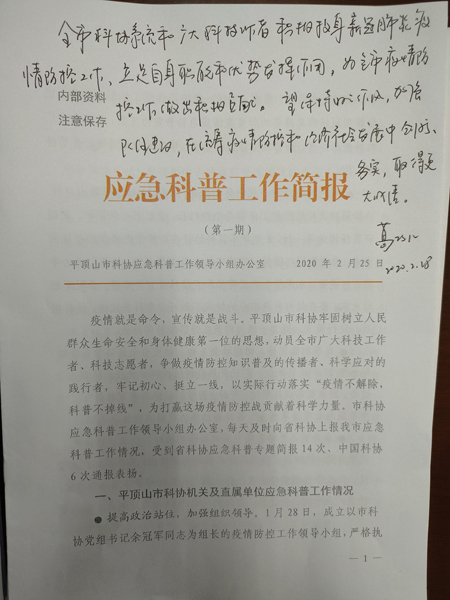 全市科协系统和广大科技工作者积极投身新冠肺炎疫
情防控工作，立足自身职能和优势发挥作用，为全市疫情防
内部资料
控工作做出积极贡献。望保持
加强
注意保存
在统筹疫情防控和经济社会发展中
务实，取得更
大成绩。
应急科普工作简报
（第一期）
2020.2.28
平顶山市科协应急科普工作领导小组办公室 2020 年 2 月 25 日
疫情就是命令，宣传就是战斗。平顶山市科协牢固树立人民
群众生命安全和身体健康第一位的思想，动员全市广大科技工作
者、科技志愿者，争做疫情防控知识普及的传播者、科学应对的
践行者，牢记初心、挺立一线，以实际行动落实“疫情不解除，
科普不掉线”，为打赢这场疫情防控战贡献着科学力量。市科协
应急科普工作领导小组办公室，每天及时向省科协上报我市应急
科普工作情况，受到省科协应急科普专题简报 14 次、中国科协
6 次通报表扬。
一、平顶山市科协机关及直属单位应急科普工作情况
● 提高政治站位，加强组织领导。1 月 28 日，成立以市科
协党组书记余冠军同志为组长的疫情防控工作领导小组，严格执
— 1 —